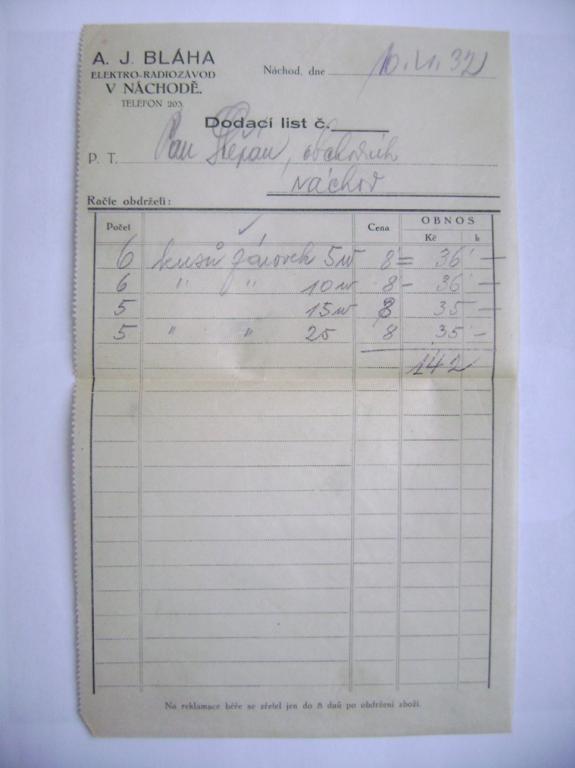 A. J. BLÁHA
ELEKTRO-RADIOZÁVOD
V NÁCHODĚ.
TELEFON 203
Náchod, dne 10. VI. 32
Dodací list č.
P. T. Pan Štěpán, obchodník
Náchod
Račte obdrželi:
Počet Cena OBNOS
Kč h
6 kusů žárovek 5w 8 = 36 —
6 " " 10w 8 - 36 —
5 15w 8 35 —
5 " " 25 8 35 —
142
Na reklamace béře se zřetel jen do 8 dnů po obdržení zboží.